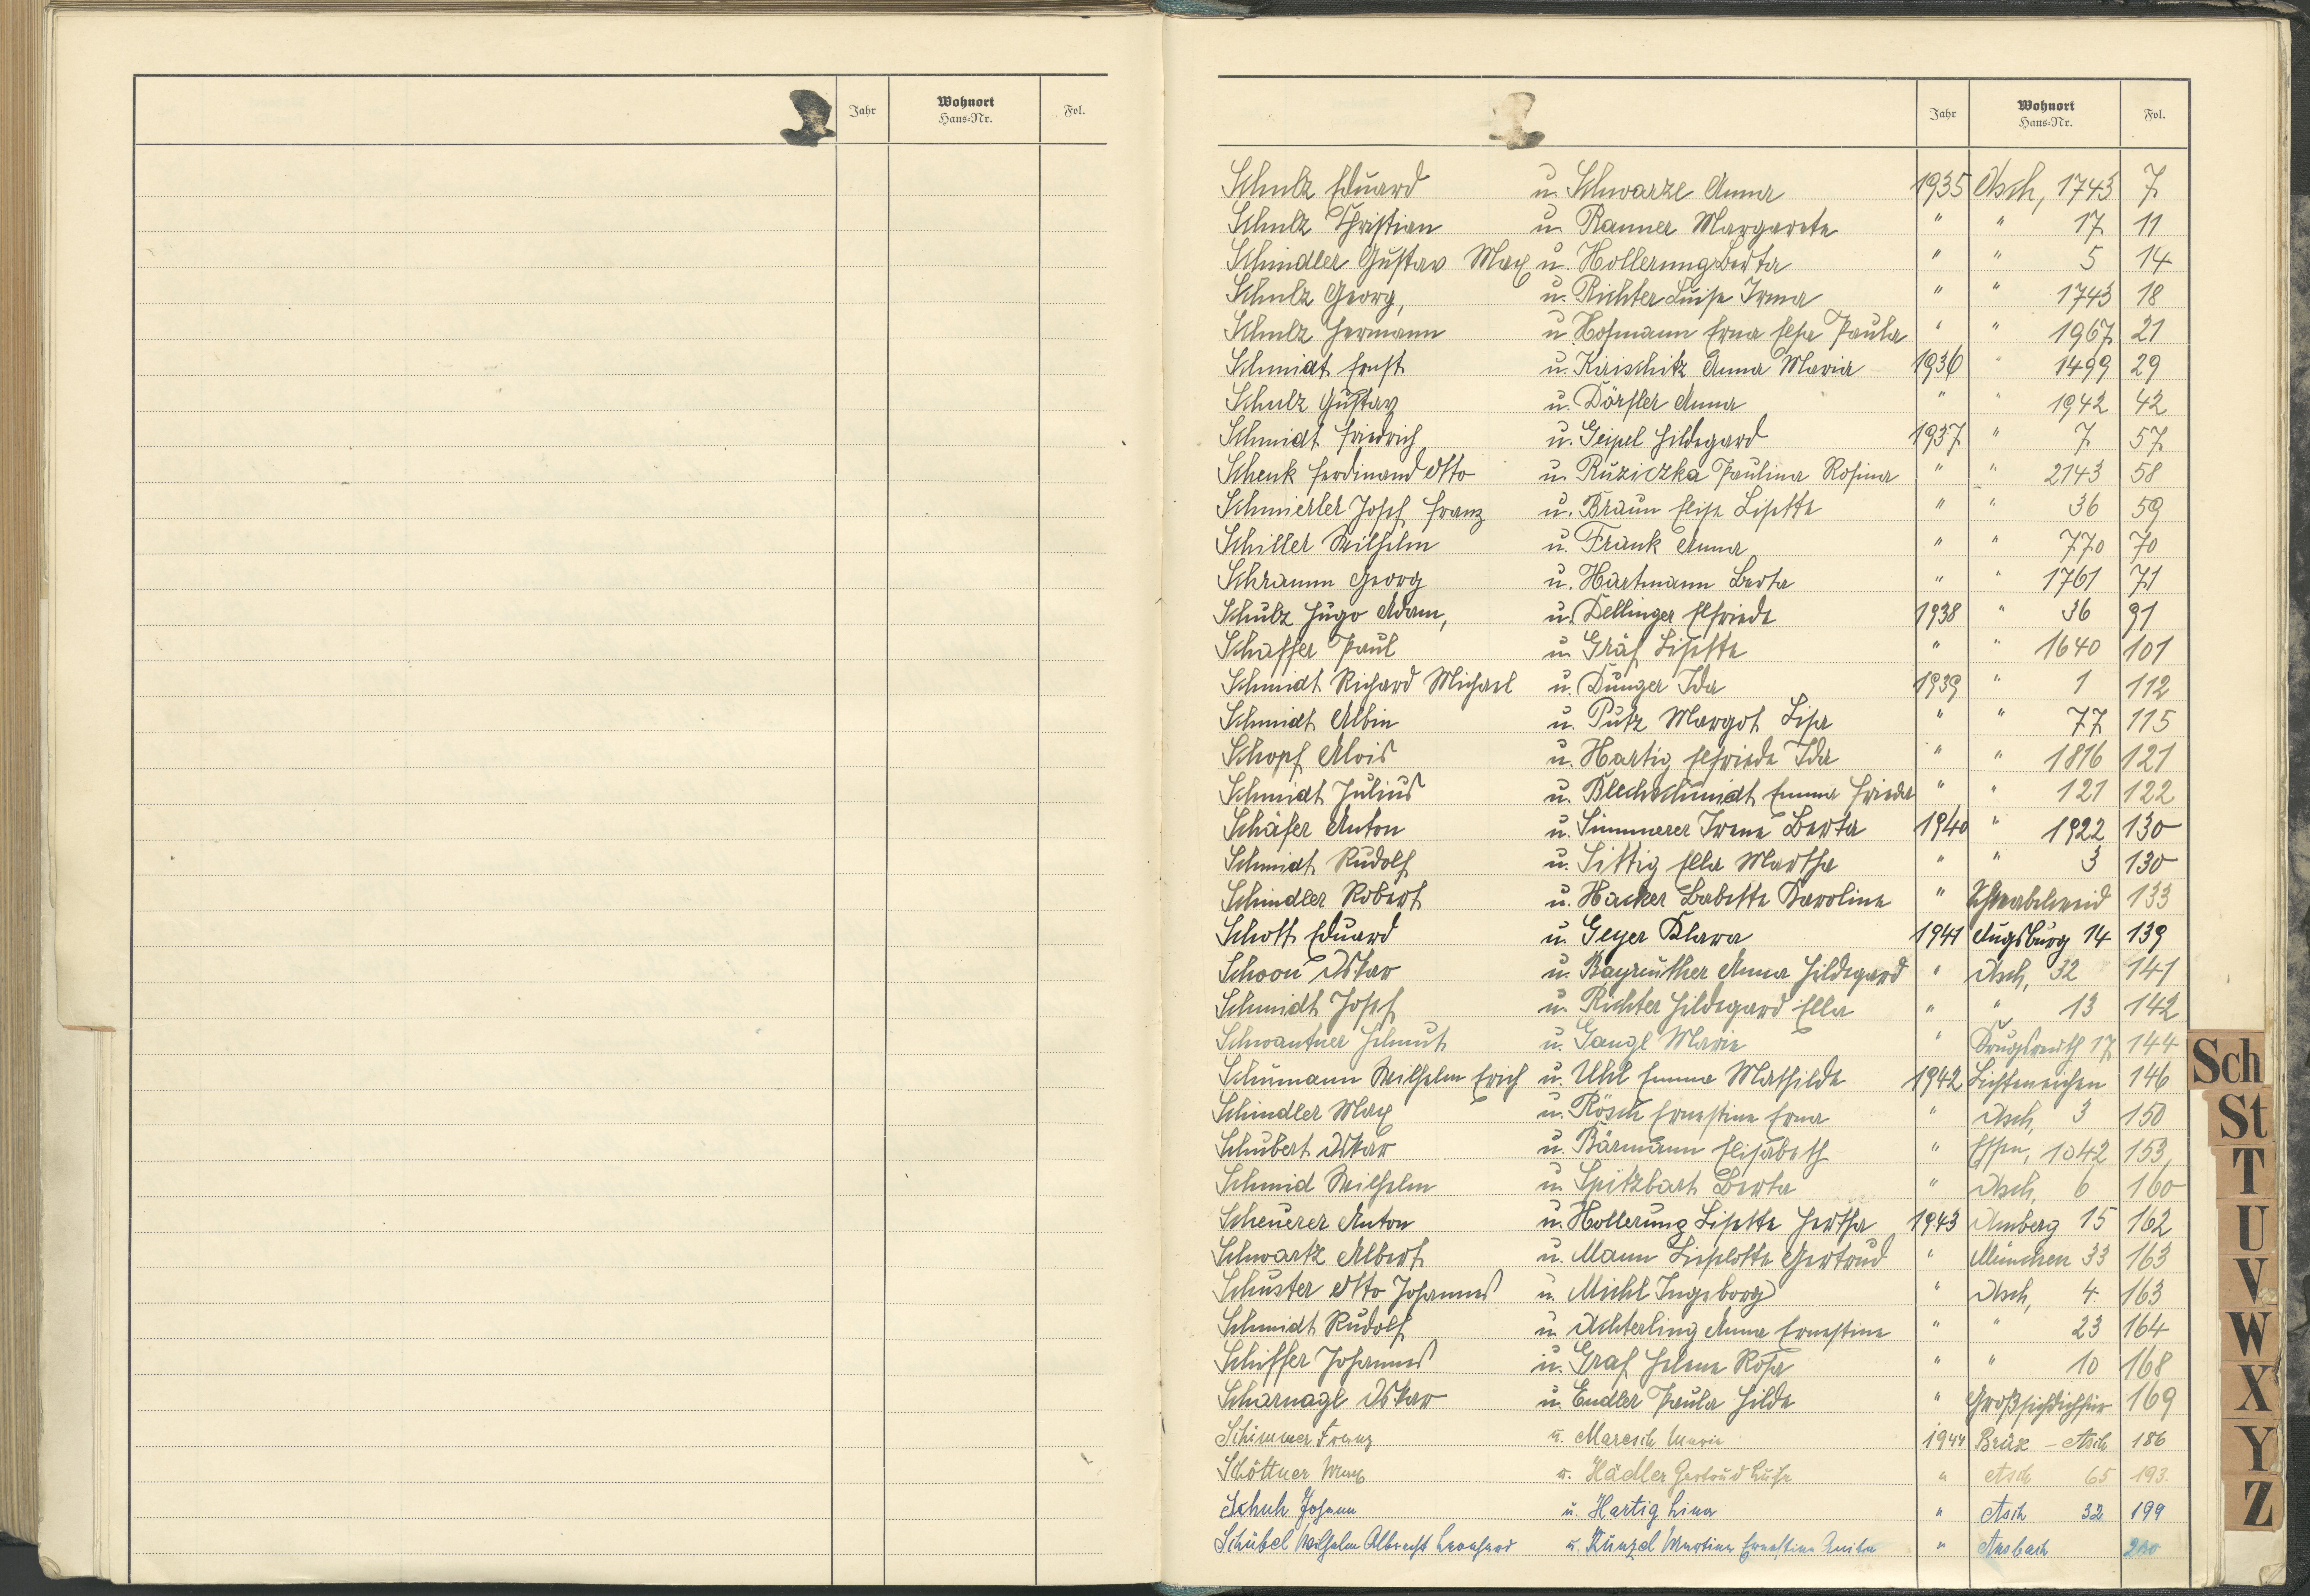 Jahr Wohnort Haus=Nr. Fol.
Jahr Wohnort Haus=Nr. Fol.
Schulz Eduard u. Schwarze Anna 1935 Asch, 1743 7
Schulz Christian u. Ranner Margarete " " 17 11
Schindler Gustav Max u. Hollerung Berta " " 5 14
Schulz Georg, u. Richter Luise Irma " " 1743 18
Schulz Hermann u. Hofmann Erna Elsa Paula " " 1967 21
Schmidt Ernst u. Kirischitz Anna Maria 1936 " 1499 29
Schulz Gustav u. Dörfler Anna " " 1942 42
Schmidt Friedrich u. Geipel Hildegard 1937 " 7 57
Schenk Ferdinand Otto u. Ruziczka Paulina Rosina " " 2143 58
Schmierler Josef Franz u. Braun Elise Lisette " " 36 59
Schiller Wilhelm u. Frank Anna " " 770 70
Schramm Georg u. Hartmann Berta " " 1761 71
Schulz Hugo Adam, u. Dellinger Elfriede 1938 " 36 91
Schaffer Paul u. Gräf Lisette " " 1640 101
Schmidt Richard Michael u. Dunger Ida 1939 " 1 112
Schmidt Albin u. Putz Margot Lisa " " 77 115
Schopf Alois u. Hartig Elfriede Ida " " 1816 121
Schmidt Julius u. Blechschmidt Emma Frieda " " 121 122
Schäfer Anton u. Simmerer Irene Berta 1940 " 1922 130
Schmidt Rudolf u. Sittig Ella Martha " " 3 130
Schindler Robert u. Hacker Babette Karoline " 133
Schott Eduard u. Geyer Klara 1941 Augsburg 14 139
Schoon Oskar u. Bayreuther Anna Hildegard " Asch, 32 141
Schmidt Josef u. Richter Hildegard Ella " " 13 142
Schwantner Helmut u. Gangl Marie " Krugsreuth 17 144
Schumann Wilhelm Erich u. Uhl Emma Mathilde 1942 Lichteneichen 146
Schindler Max u. Rösch Ernestine Erna " Asch, 3 150
Schubert Oskar u. Bärmann Elisabeth " Essen, 1042 153
Schmid Wilhelm u. Spitzbart Berta " Asch, 6 160
Scheuerer Anton u. Hollerung Lisette Hertha 1943 Amberg 15 162
Schwartz Albert u. Mann Lieselotte Gertrud " München 33 163
Schuster Otto Johannes u. Michl Ingeborg " Asch, 4 163
Schmidt Rudolf u. Achterling Anna Ernestine " " 23 164
Schiffer Johannes u. Graf Helene Rosa " " 10 168
Scharnagl Oskar u. Endler Paula Hilde " 169
Schimmer Franz u. Maresch Maria 1944 Brüx - Asch 186
Schöttner Max u. Hädler Gertrud Luise " Asch 65 193.
Schuh Johann u. Hartig Lina " Asch 32 199
Schübel Wilhelm Albrecht Leonhard u. Künzel Martina Ernestine Anita " Ansbach 200
Sch
St
T
U
V
W
X
Y
Z